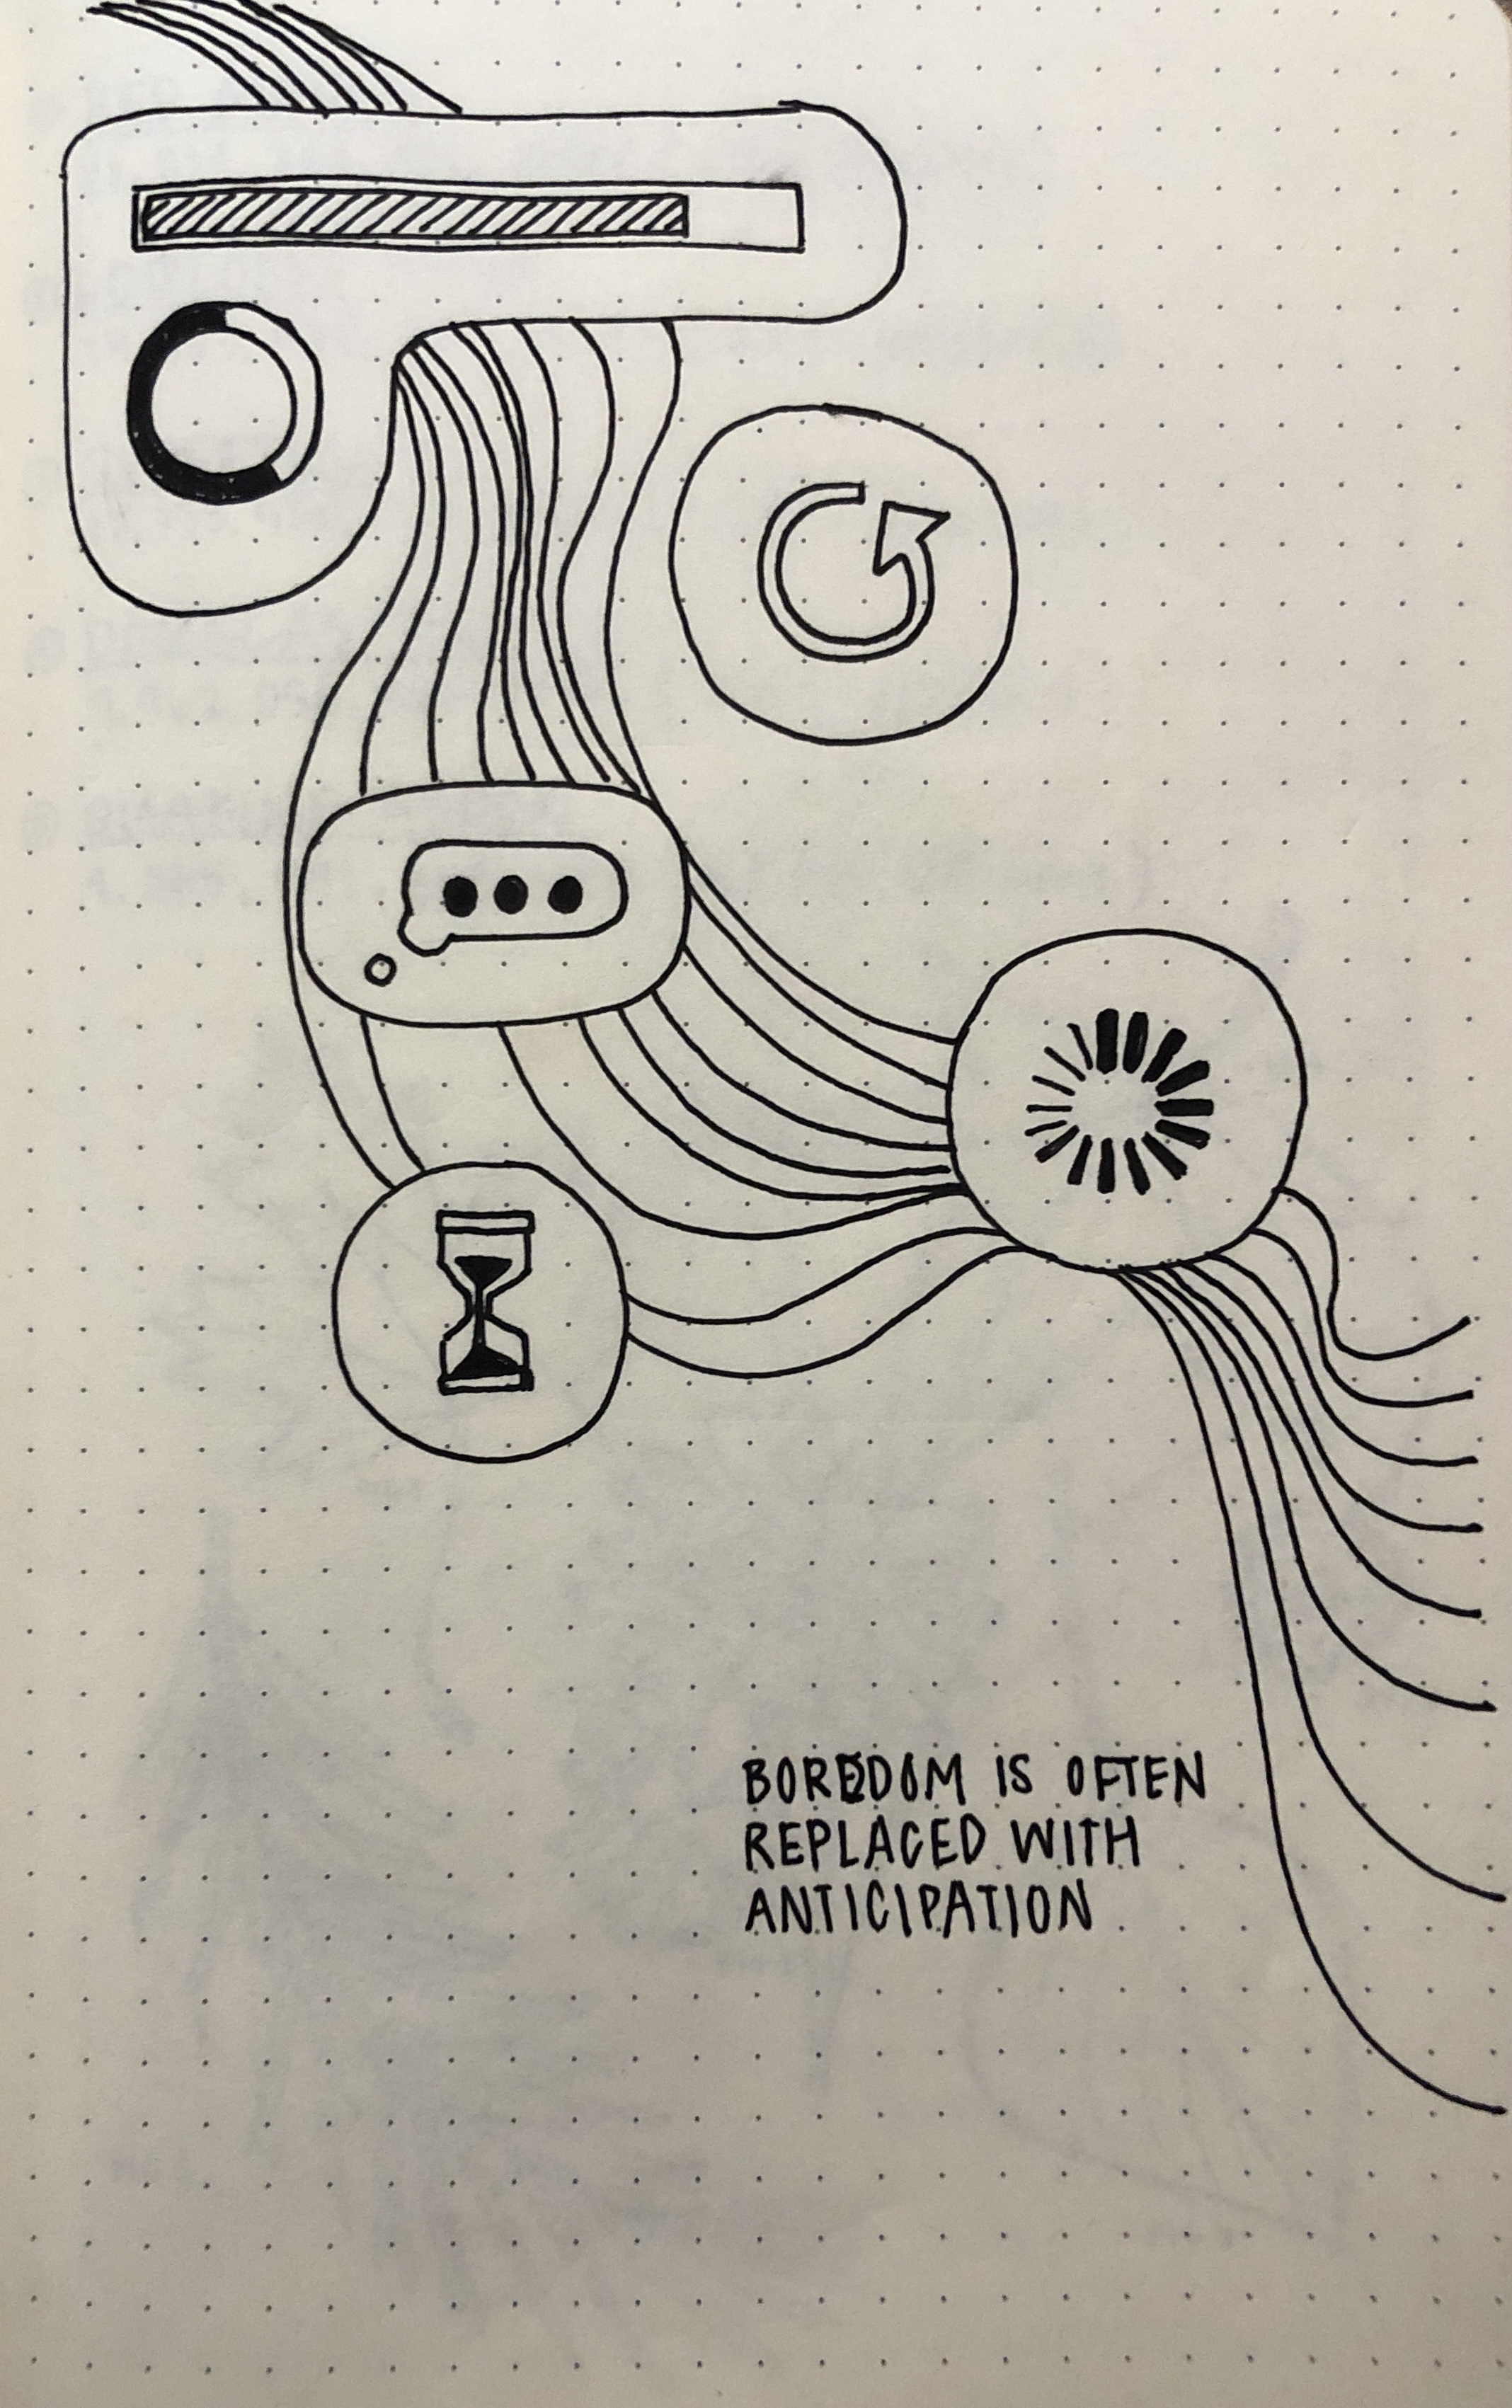 BOREDOM IS OFTEN
REPLACED WITH
ANTICIPATION